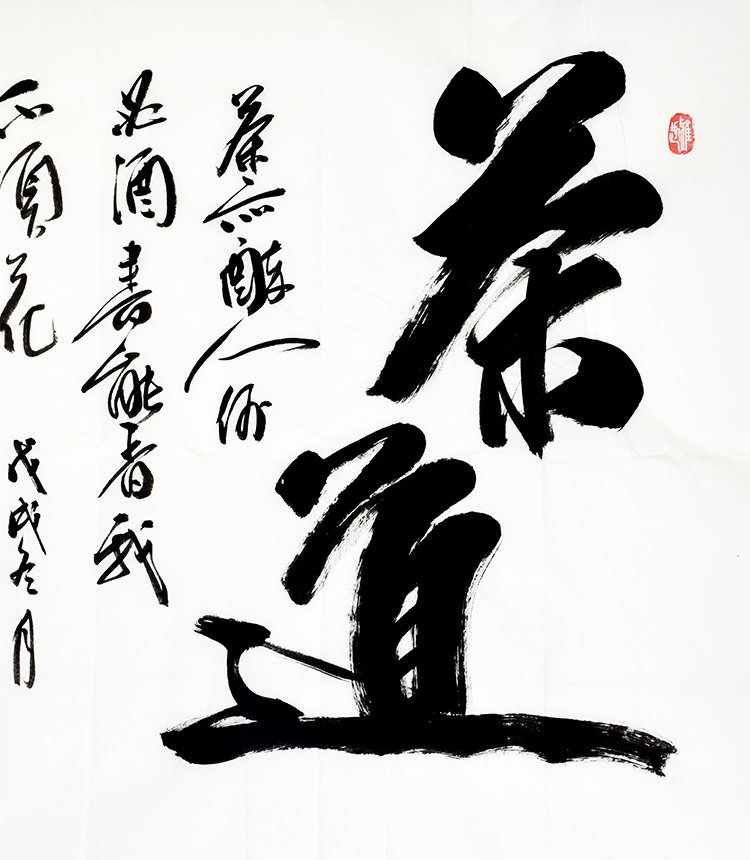 茶道
茶亦醉人何
必酒書能香我
不須花
戊戌冬月